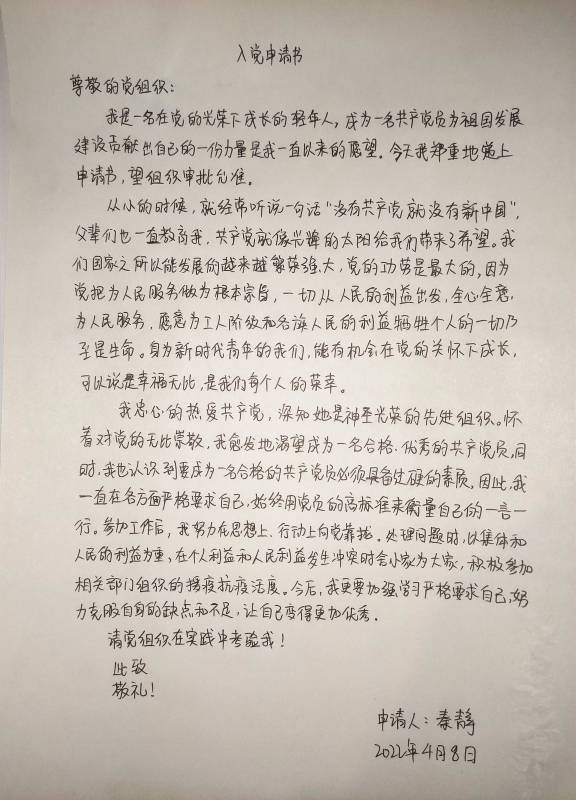 入党申请书
尊敬的党组织：
我是一名在党的光荣下成长的轻年人，成为一名共产党员为祖国发展
建设贡献出自己的一份力量是我一直以来的愿望。今天我郑重地递上
申请书，望组织审批允准。
从小的时候，就经常听说一句话“没有共产党就没有新中国”，
父辈们也一直教育我，共产党就像光辉的太阳给我们带来了希望。我
们国家之所以能发展的越来越繁荣强大，党的功劳是最大的，因为
党把为人民服务做为根本宗旨，一切从人民的利益出发，全心全意
为人民服务，愿意为工人阶级和各族人民的利益牺牲个人的一切乃
至是生命。身为新时代青年的我们，能有机会在党的关怀下成长，
可以说是幸福无比，是我们每个人的荣幸。
我忠心的热爱共产党，深知她是神圣光荣的先进组织。怀
着对党的无比崇敬，我愈发地渴望成为一名合格、优秀的共产党员，同
时，我也认识到要成为一名合格的共产党员必须具备过硬的素质。因此，我
一直在各方面严格要求自己，始终用党员的高标准来衡量自己的一言一
行。参加工作后，我努力在思想上、行动上向党靠拢。处理问题时，以集体和
人民的利益为重，在个人利益和人民利益发生冲突时舍小家为大家，积极参加
相关部门组织的疫抗疫活。今后，我更要加强学习严格要求自己，努
力克服自身的缺点和不足，让自己变得更加优秀。
请党组织在实践中考验我！
此致
敬礼！
申请人：秦静
2022年4月8日